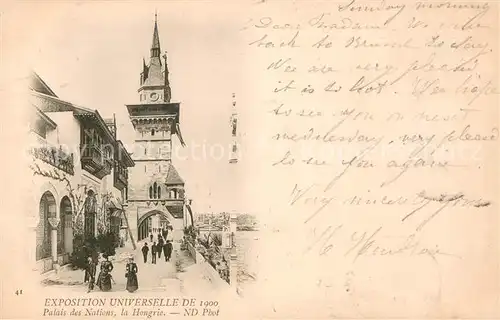 Sunday morning
Dear Madam. We came
back to to day
We are very pleased
it is to hot. We hope
to see you on next
wednesday, very please
to see you again
Very sincerely yours
41
EXPOSITION UNIVERSELLE DE 1900
Palais des Nations, la Hongrie. — ND Phot